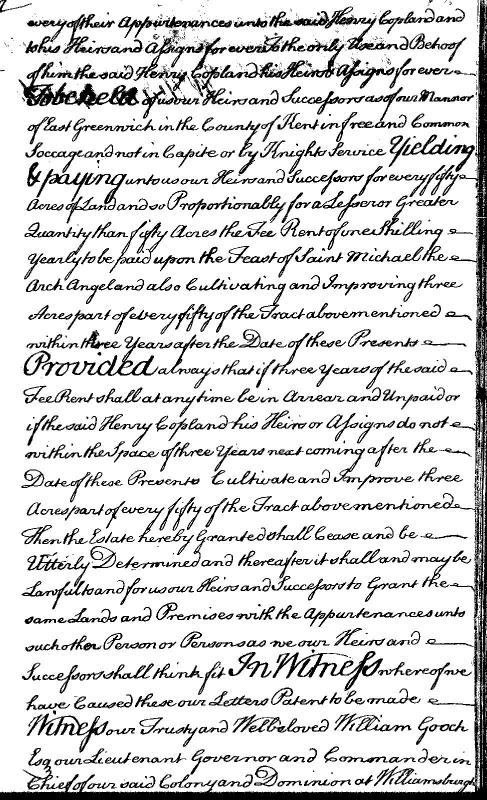 every of their Appurtenances unto the said Henry Copland and
to his Heirs and Assigns for ever To the only Use and Behoof
of him the said Henry Copland his Heirs & Assigns for ever
To be held of us our Heirs and Successors as of our Mannor
of East Greenwich in the County of Kent in free and Common
Soccage and not in Capite or by Knights Service Yielding
& paying unto us our Heirs and Successors for every fifty
Acres of Land and so Proportionally for a Lesser or Greater
Quantity than fifty Acres the Fee Rent of one Shilling
Yearly to be paid upon the Feast of Saint Michael the
Arch Angel and also Cultivating and Improving three
Acres part of every fifty of the Tract abovementioned
within three Years after the Date of these Presents
Provided always that if three Years of the said
Fee Rent shall at any time be in Arrear and Unpaid or
if the said Henry Copland his Heirs or Assigns do not
within the Space of three Years next coming after the
Date of these Presents Cultivate and Improve three
Acres part of every fifty of the Tract abovementioned
Then the Estate hereby Granted shall Cease and be
Utterly Determined and thereafter it shall and may be
Lawful to and for us our Heirs and Successors to Grant the
same Lands and Premises with the Appurtenances unto
such other Person or Persons as we our Heirs and
Successors shall think fit In Witness whereof we
have Caused these our Letters Patent to be made
Witness our Trusty and Welbeloved William Gooch
Esq our Lieutenant Governor and Commander in
Chief of our said Colony and Dominion at Williamsburgh